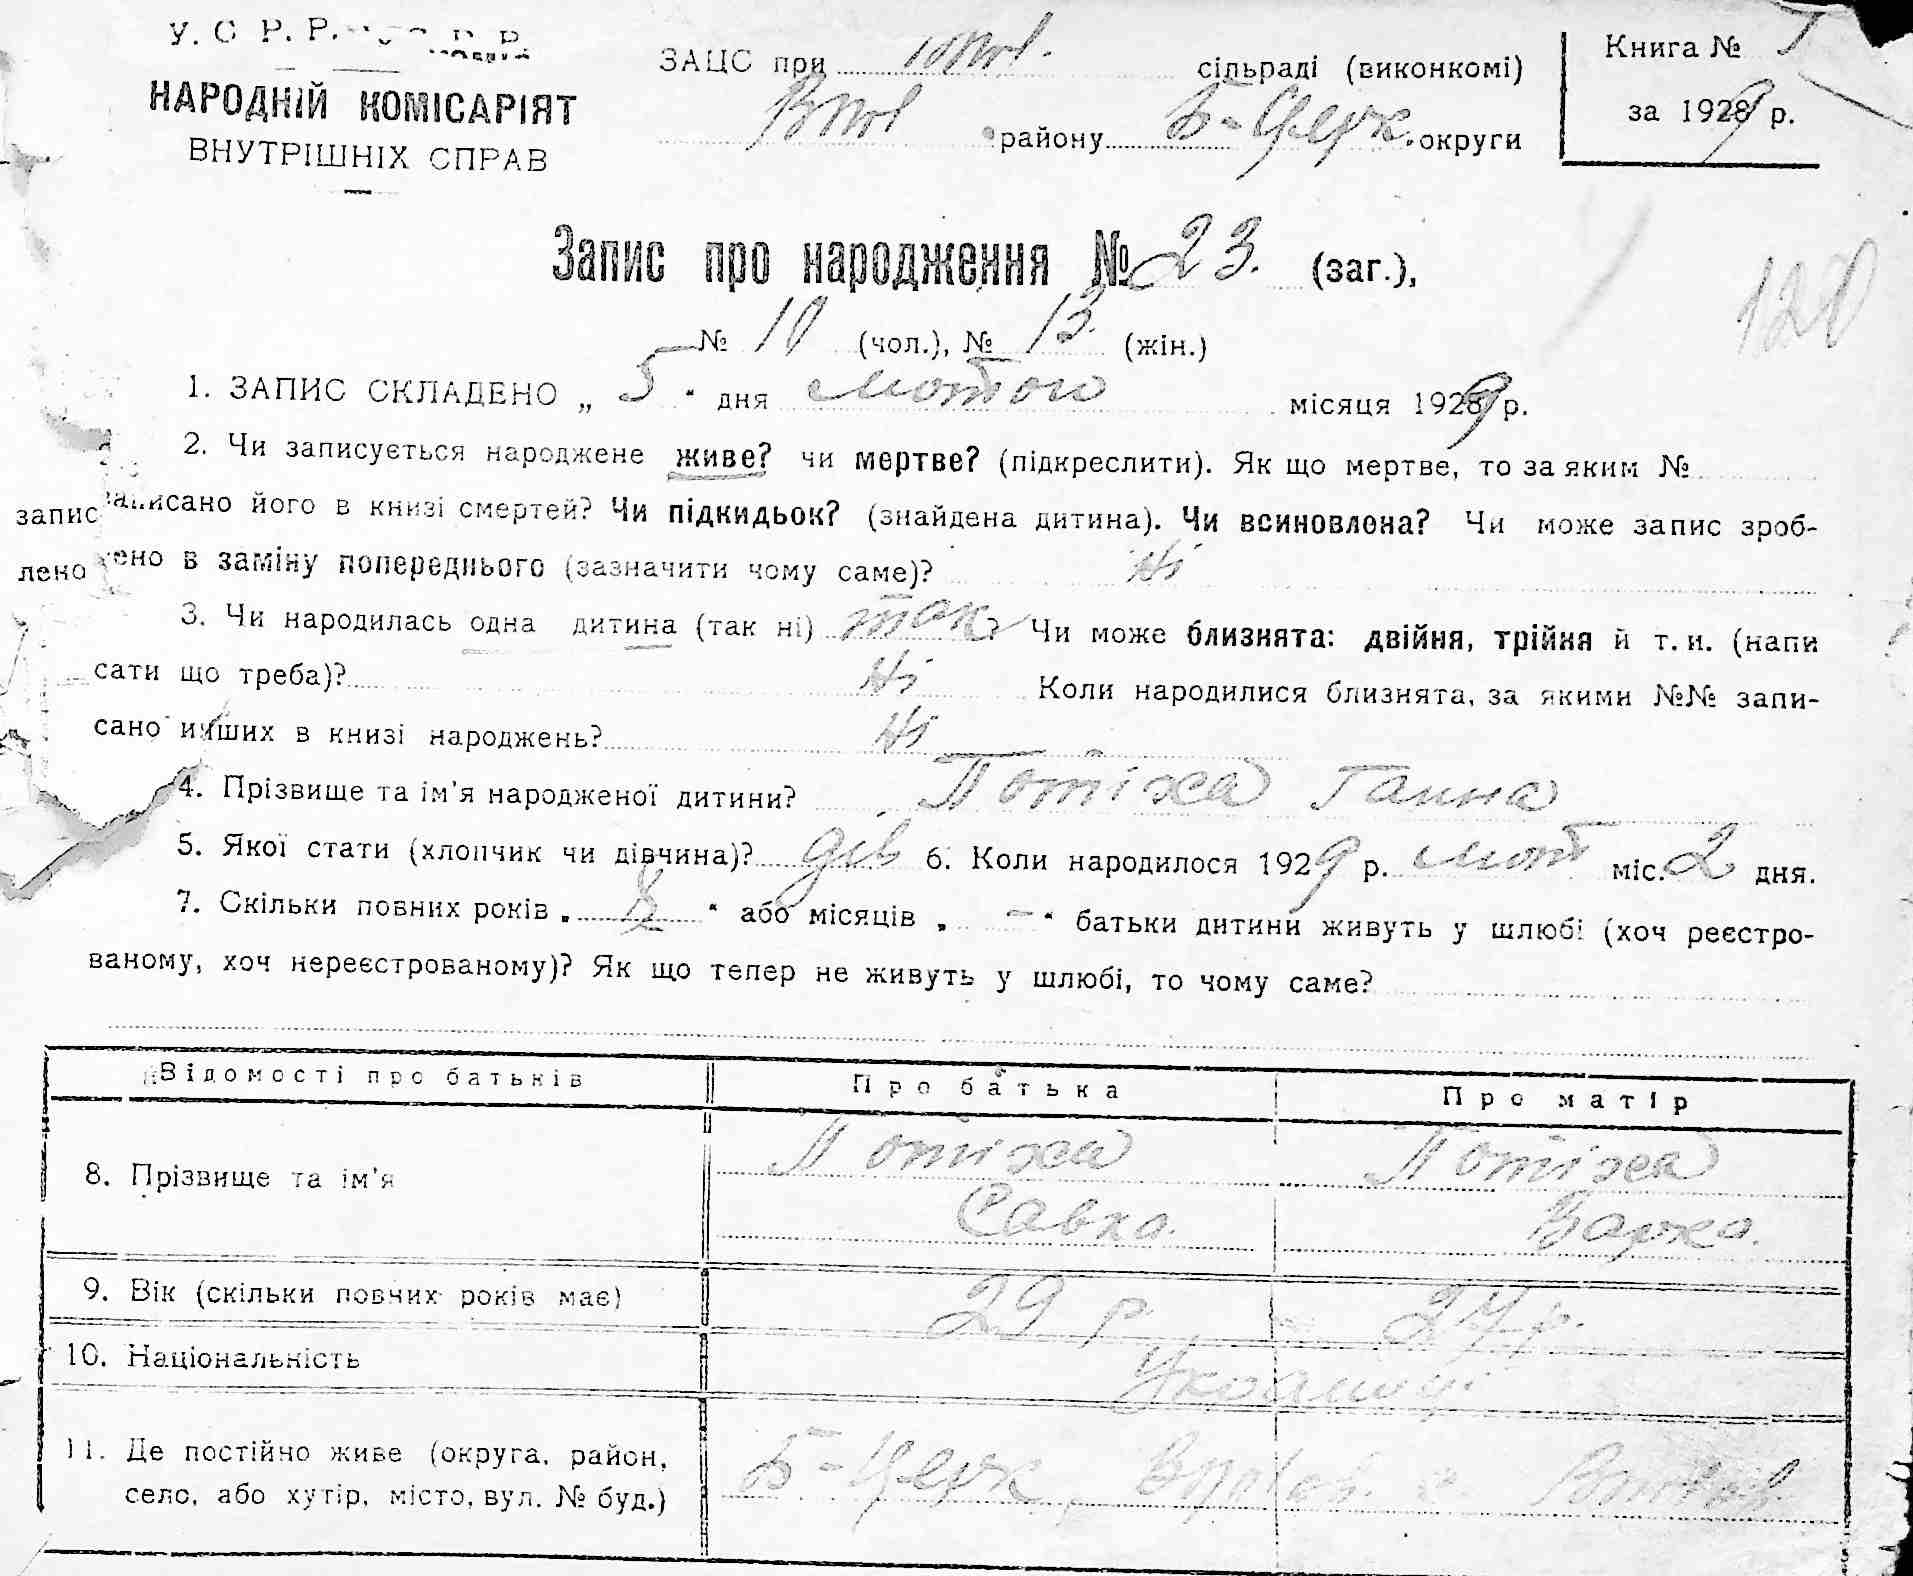 У. С Р. Р.
НАРОДНІЙ КОМІСАРІЯТ
ВНУТРІШНІХ СПРАВ
ЗАЦС при сільраді (виконкомі)
району Б-Церк. округи
Книга № 1
за 1929 р.
Запис про народження № 23. (заг.),
№ 10 (чол.), № 13. (жін.)
120
1. ЗАПИС СКЛАДЕНО „ 5 " дня лютого місяця 1929 р.
2. Чи записується народжене живе? чи мертве? (підкреслити). Як що мертве, то за яким №
записано його в книзі смертей? Чи підкидьок? (знайдена дитина). Чи всиновлена? Чи може запис зроб-
лено в заміну попереднього (зазначити чому саме)? Ні
3. Чи народилась одна дитина (так ні) так? Чи може близнята: двійня, трійня й т. и. (напи
сати що треба)? Ні Коли народилися близнята, за якими №№ запи-
сано инших в книзі народжень? Ні
4. Прізвище та ім'я народженої дитини? Потіха Ганна
5. Якої стати (хлопчик чи дівчина)? дів 6. Коли народилося 1929 р. лют міс. 2 дня.
7. Скільки повних років „ 8 " або місяців „ - " батьки дитини живуть у шлюбі (хоч реєстро-
ваному, хоч нереєстрованому)? Як що тепер не живуть у шлюбі, то чому саме?
Відомості про батьків Про батька Про матір
8. Прізвище та ім'я Потіха Савка. Потіха Варка.
9. Вік (скільки повних років має) 29 р. 27 р.
10. Національність Українці
11. Де постійно живе (округа, район,
село, або хутір, місто, вул. № буд.) Б-Церк,